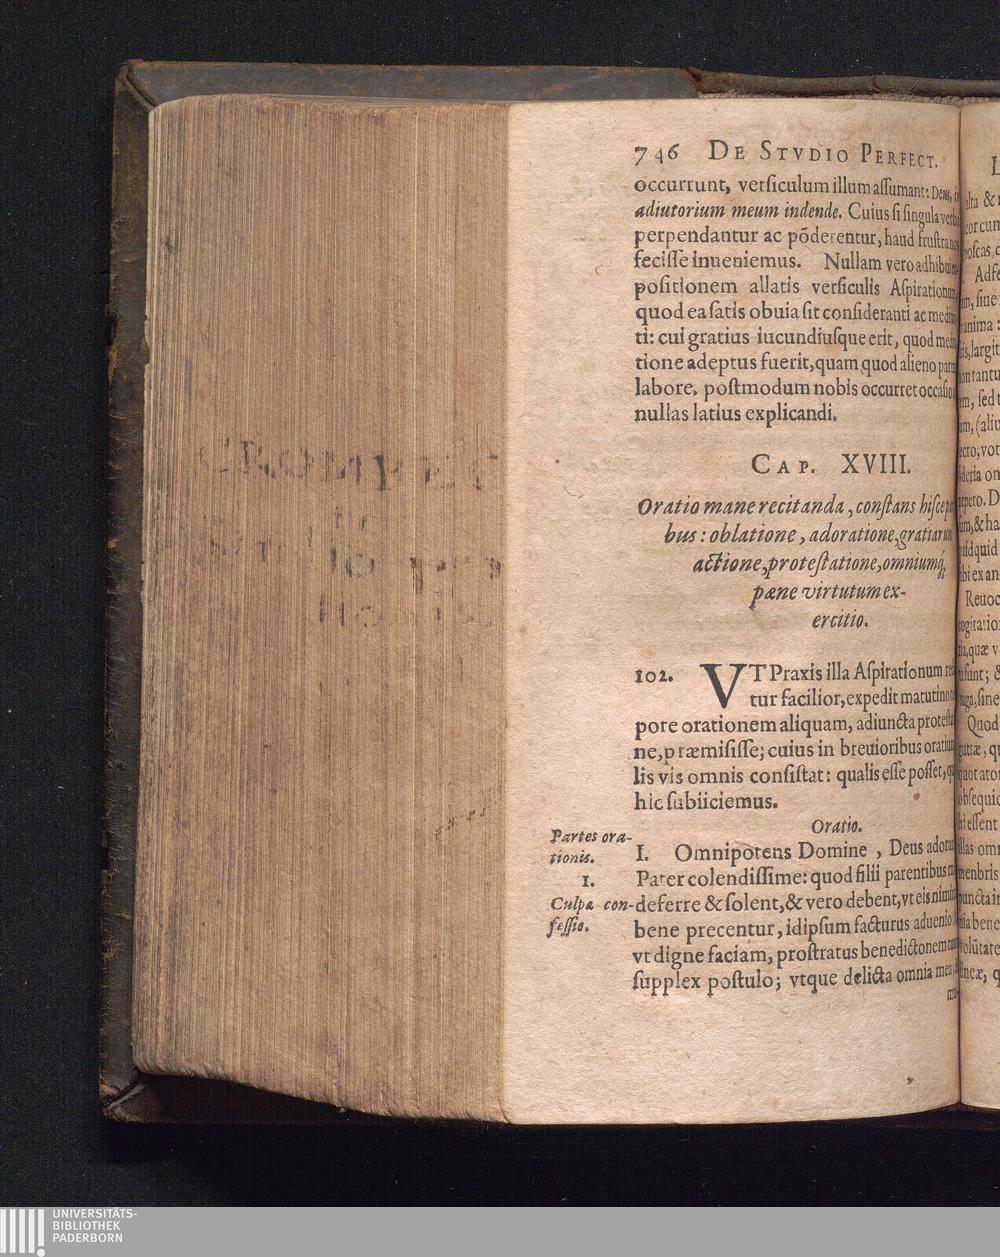 746 DE STVDIO PERFECT.
occurrunt, verſiculum illum aſſumant: Deus, in
adiutorium meum indende. Cuius ſi ſingula verba
perpendantur ac põderentur, haud fruſtra nos
feciſſe inueniemus. Nullam vero adhibui ex-
poſitionem allatis verſiculis Aſpirationum,
quod ea ſatis obuia ſit conſideranti ac medi
ti: cui gratius iucundiuſque erit, quod me
tione adeptus fuerit, quam quod alieno par
labore, poſtmodum nobis occurret occaſio
nullas latius explicandi.
CAP. XVIII.
Oratio mane recitanda, conſtans hiſce par
bus: oblatione, adoratione, gratiarum
actione, proteſtatione, omniumq́;
pæne virtutum ex-
ercitio.
102. VT Praxis illa Aſpirationum re
tur facilior, expedit matutino
pore orationem aliquam, adiuncta proteſta
ne, præmiſiſſe; cuius in breuioribus oratiun
lis vis omnis conſiſtat: qualis eſſe poſſet, qu
hic ſubiiciemus.
Oratio.
Partes ora-
tionis.
1.
Culpæ con-
feſſio.
I. Omnipotens Domine, Deus adoran
Pater colendiſſime: quod filii parentibus
deferre & ſolent, & vero debent, vt eis nimi
bene precentur, idipſum facturus aduenio
vt digne faciam, proſtratus benedictonem tuam
ſupplex poſtulo; vtque delicta omnia mea
mi-
UNIVERSITÄTS-
BIBLIOTHEK
PADERBORN